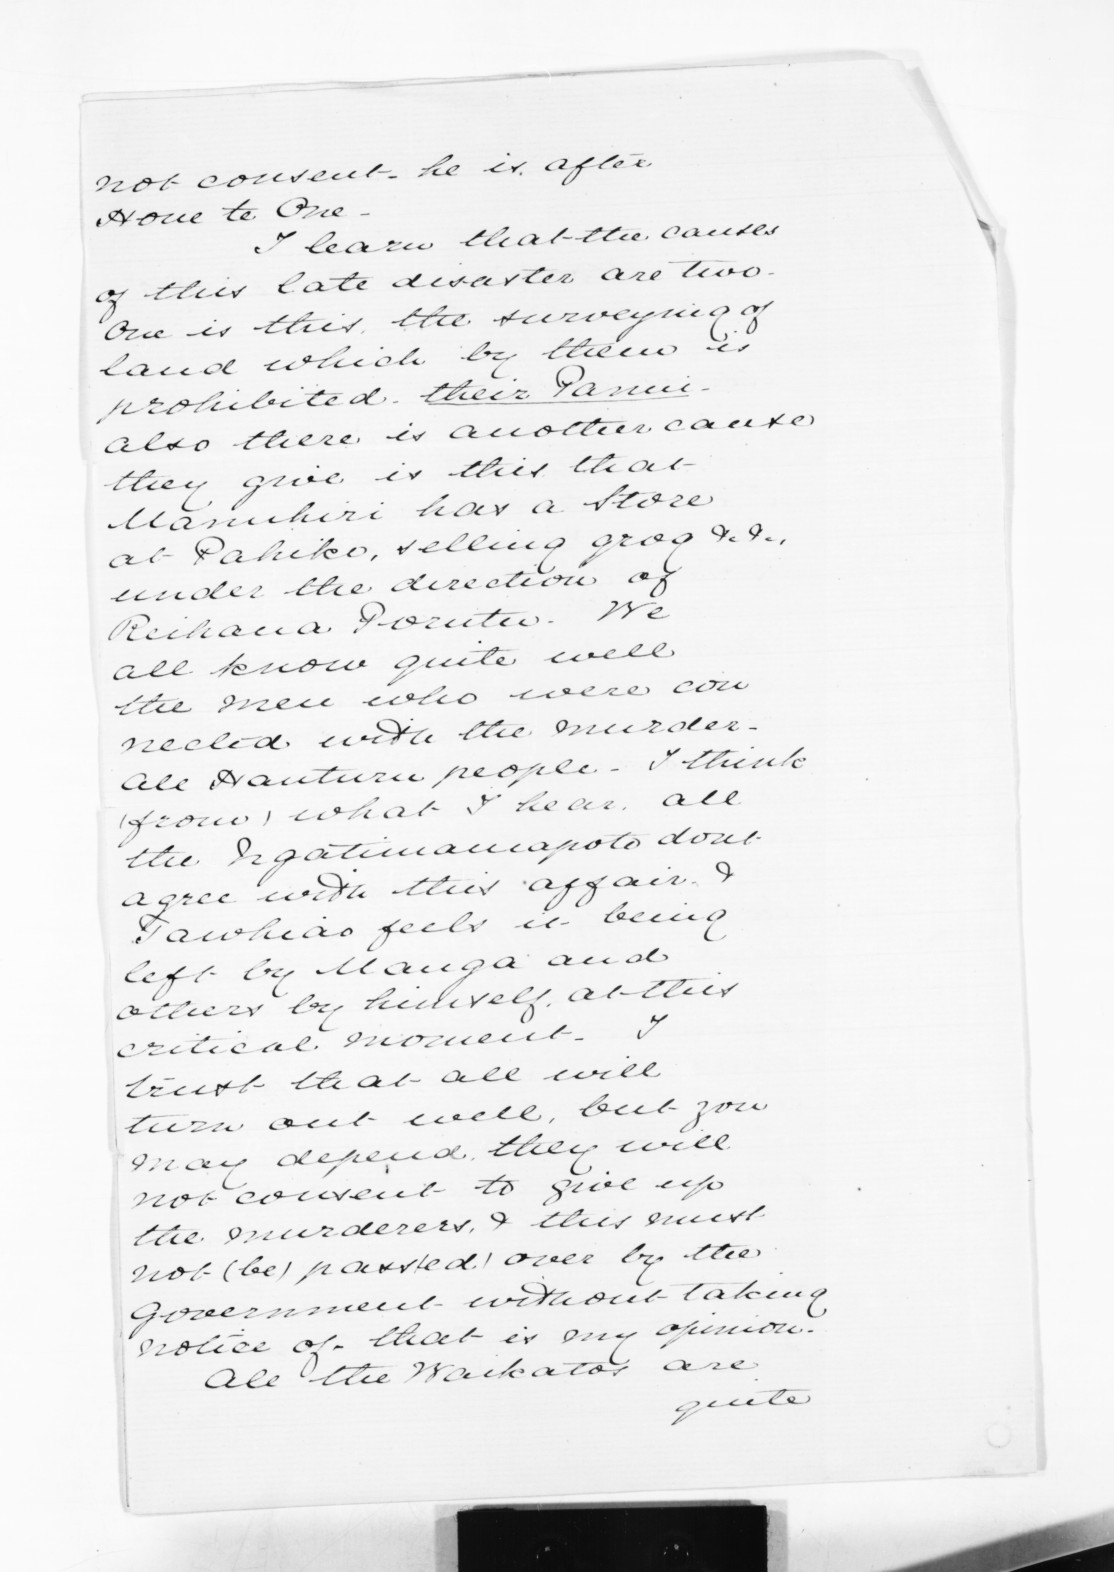 not consent - he is. after
Hone te One -
I learn that the causes
of this late disaster are two -
One is this, the surveying of
land which by them is
prohibited - their Panui -
also there is another cause
they give is this that
Manuhiri has a Store
at Pahiko, selling grog &c &c,
under the direction of
Reihana Porutu. We
all know quite well
the men who were con
nected with the murder -
all Hauturu people - I think
(from) what I hear, all
the Ngatimaniapoto dont
agree with this affair. &
Tawhiao feels it being
left by Manga and
others by himself, at this
critical moment - I
trust that all will
turn out well, but you
may depend, they will
not consent to give up
the murderers, & this must
not (be) pass(ed) over by the
Government without taking
notice of - that is my opinion.
All the Waikatos are
quite